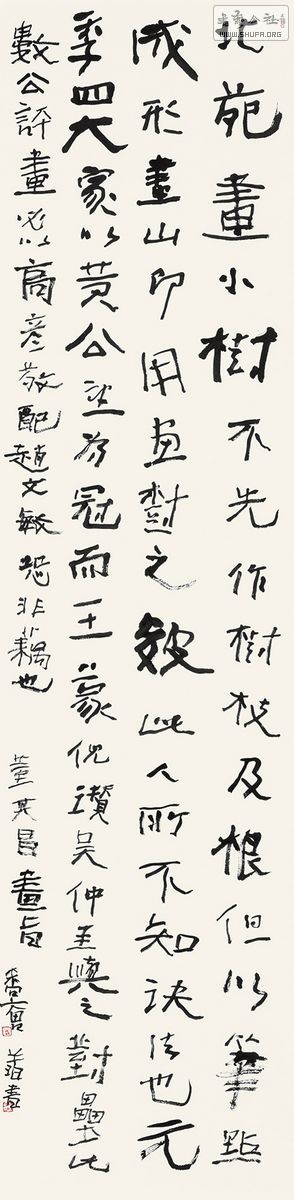 北苑畫小樹不先作樹枝及根但以筆點
成形畫山即用畫樹之皴此人所不知訣法也元
季四大家以黄公望為冠而王蒙倪瓚吴仲圭與之對壘此
數公評畫必以高彦敬配趙文敏恐非耦也
董其昌畫旨
書法公社
WWW.SHUFA.ORG